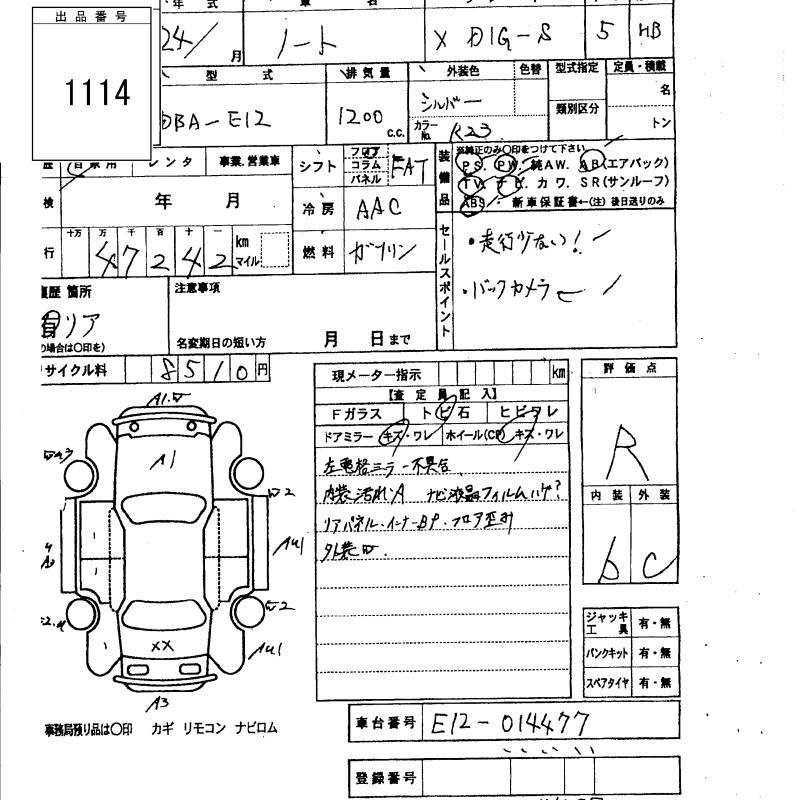 出品番号
1114
年 式
24/ 月
ノート
X DIG-S
5
HB
型 式
DBA-E12
排気量
1200
c.c.
外装色
色替
シルバー
カラー No.
K23
型式指定
類別区分
定員・積載
名
トン
自家用
レンタ
事業、営業車
シフト
フロア
コラム
パネル
FAT
装備品
※純正のみ〇印をつけて下さい
PS. PW. 純AW. AB(エアバック)
TV. ナビ. カワ. SR(サンルーフ)
ABS. 新車保証書←(注) 後日送りのみ
検
年 月
冷房
AAC
行
十万 万 千 百 十 一
4 7 2 4 2
km
マイル
燃料
ガソリン
セールスポイント
・走行少ない!
・バックカメラ
歴 箇所
有 リア
の場合は〇印を)
注意事項
名変期日の短い方 月 日まで
サイクル料
8510円
現メーター指示
km
【査定員記入】
Fガラス
トビ石
ヒビワレ
ドアミラー キズ・ワレ
ホイール(CP) キズ・ワレ
左電格ミラー不具合
内装汚れ.A ナビ液晶フィルムハゲ?
リアパネル.インナーBP.フロア歪み
外装凹.
評価点
R
内装
外装
b
C
A1.5
A1
A41
A41
XX
A3
ジャッキ工具
有・無
パンクキット
有・無
スペアタイヤ
有・無
事務局預り品は〇印 カギ リモコン ナビロム
車台番号
E12-014477
登録番号